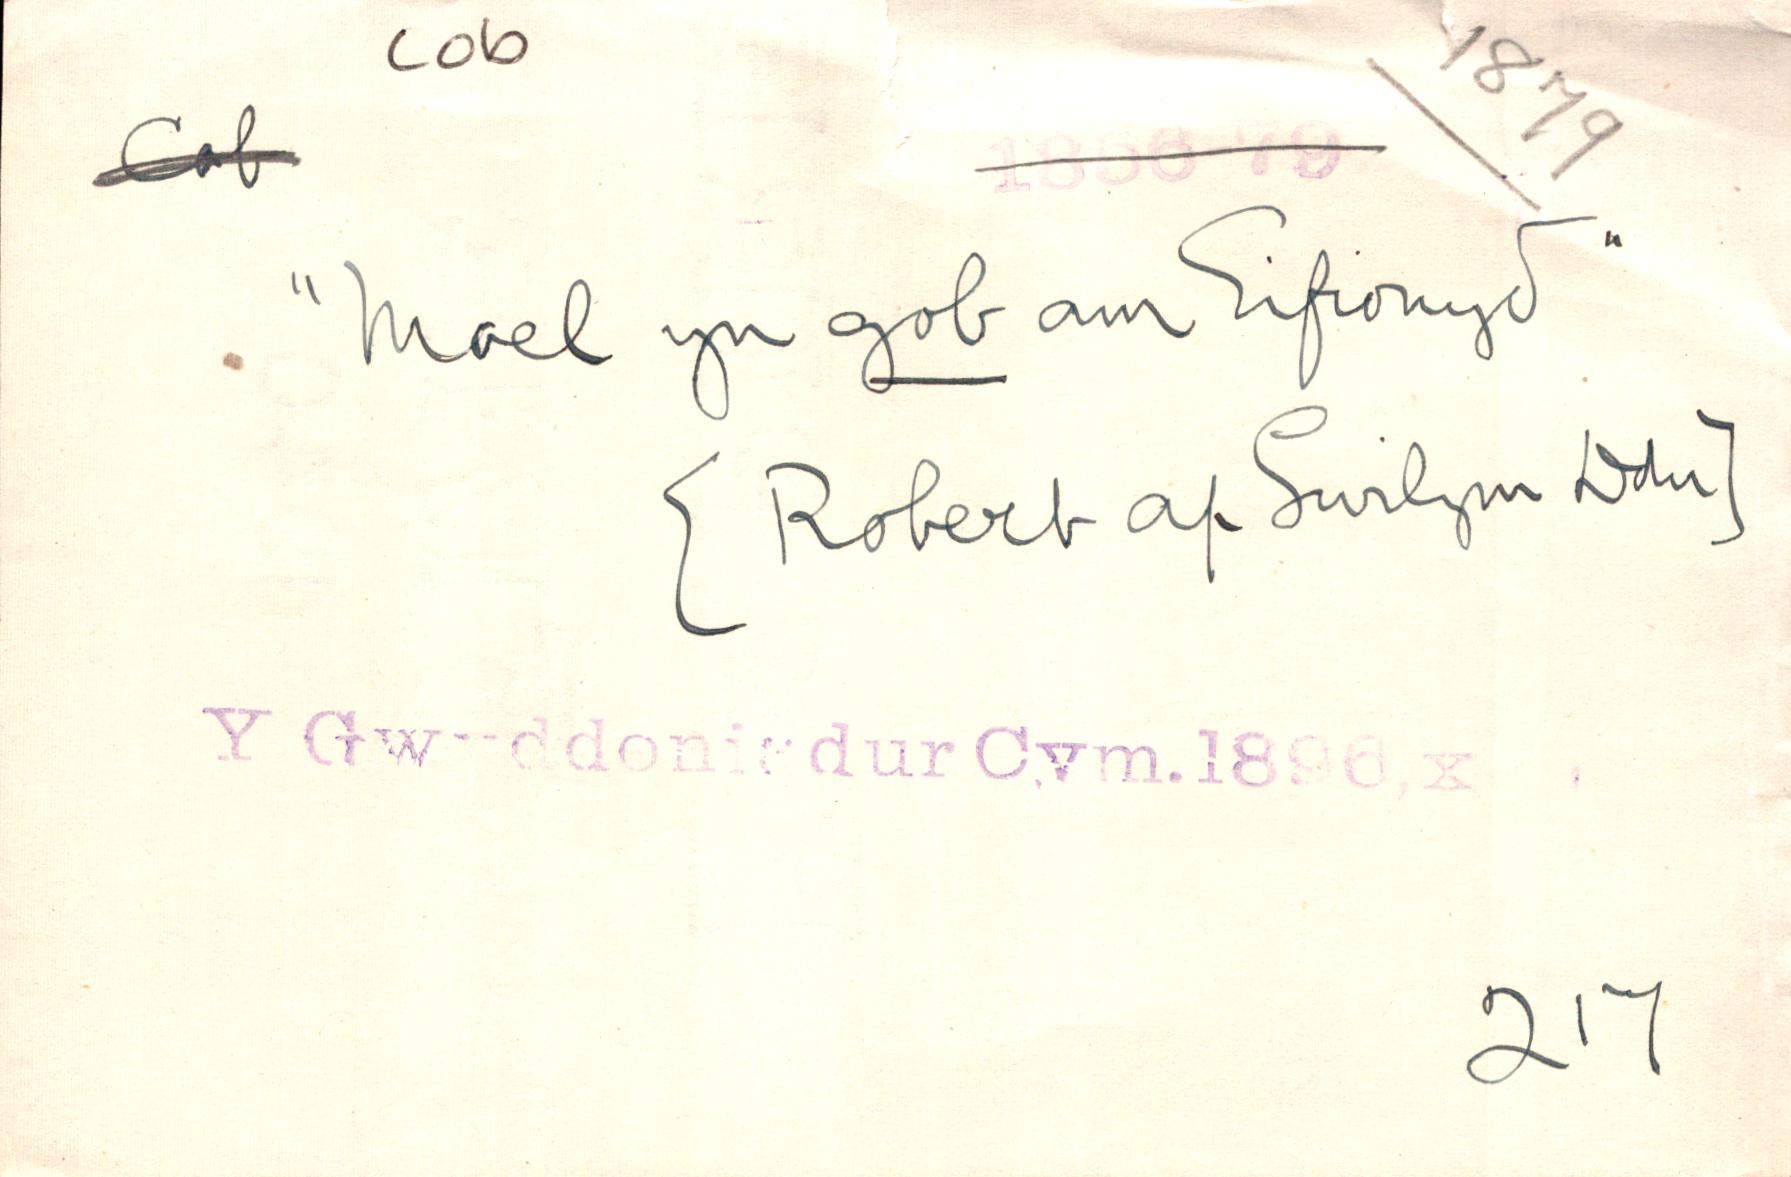 cob
1879
Cob
1856-79
"Mael yn gob am Eifionyd"
[Robert ap Gwilym Ddu]
Y Gwyddoniadur Cym. 1896, x
217